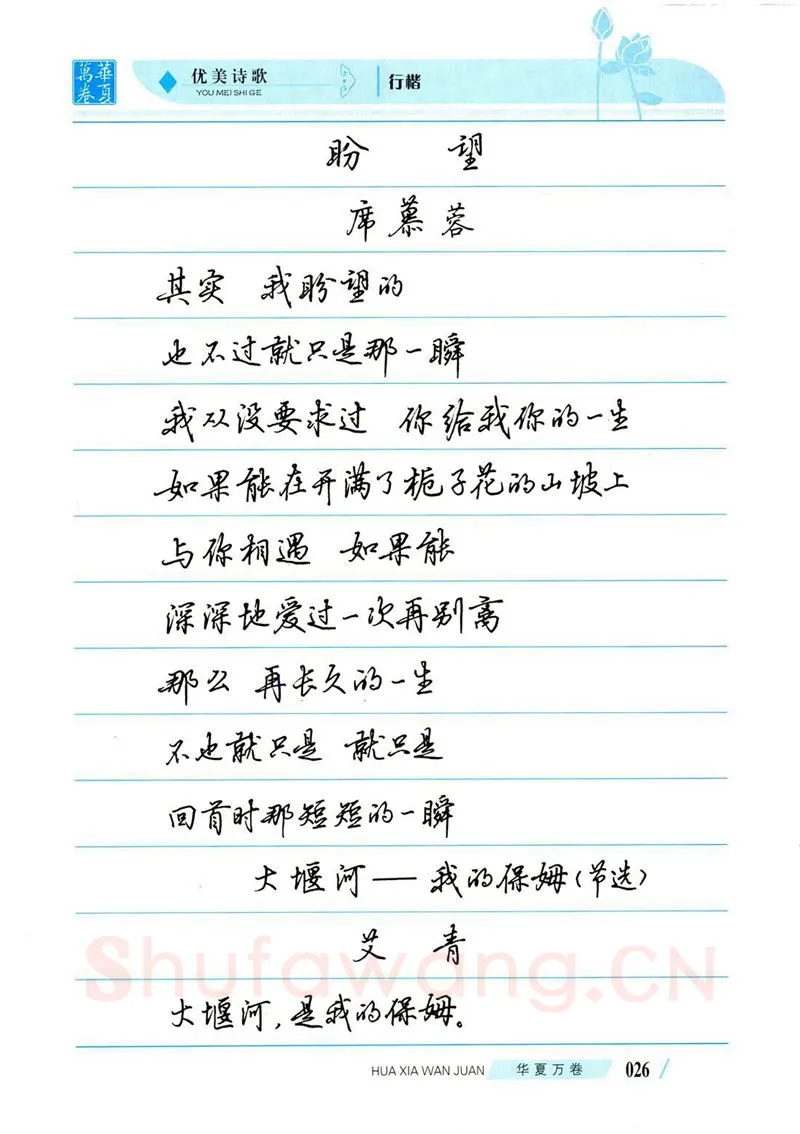 華夏萬卷
优美诗歌
YOU MEI SHI GE
行楷
盼 望
席慕蓉
其实 我盼望的
也不过就只是那一瞬
我从没要求过 你给我你的一生
如果能在开满了栀子花的山坡上
与你相遇 如果能
深深地爱过一次再别离
那么 再长久的一生
不也就只是 就只是
回首时那短短的一瞬
大堰河——我的保姆(节选)
艾 青
大堰河,是我的保姆。
Shufawang.CN
HUA XIA WAN JUAN
华夏万卷
026